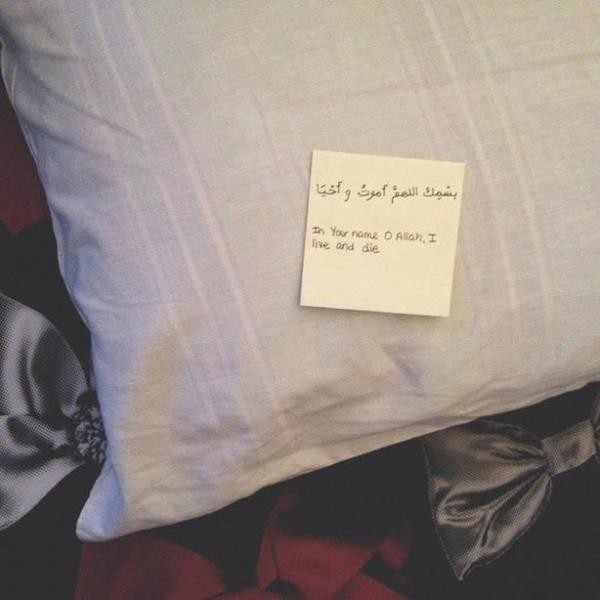 بسْمِكَ اللهمَّ أموتُ و أحْيَا
In Your name O Allah, I
live and die